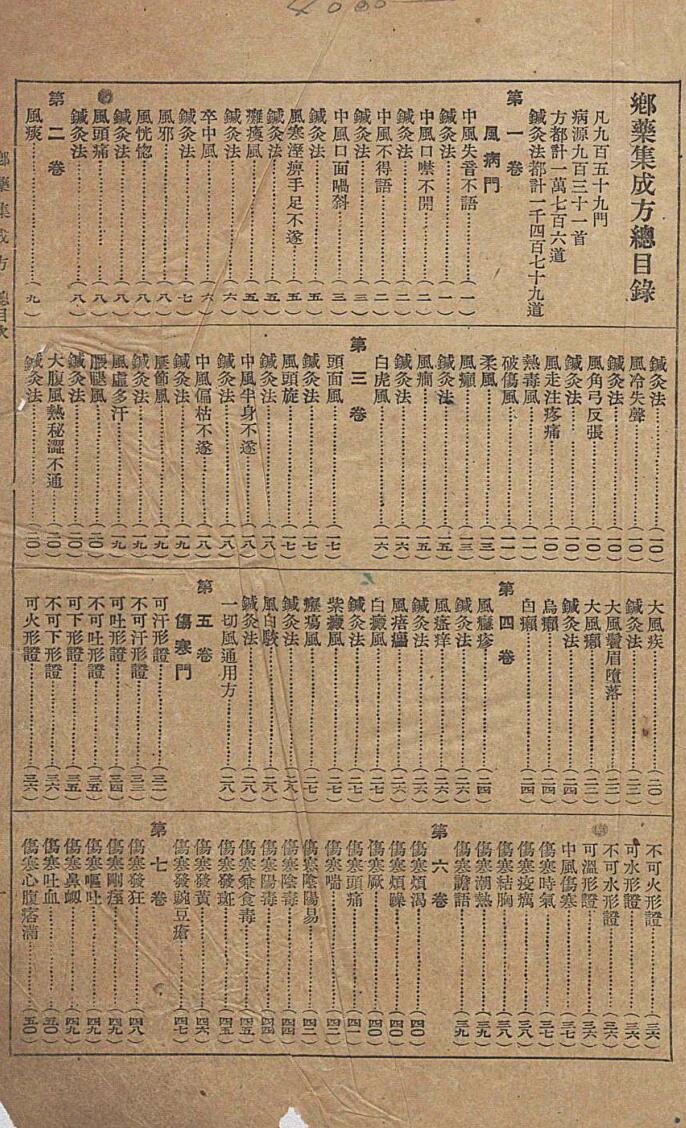 4000
鄉藥集成方總目錄
凡九百五十九門
病源九百三十一首
方都計一萬七百六道
鍼灸法都計一千四百七十九道
第一卷
風病門
中風失音不語(一)
鍼灸法(一)
中風口噤不開(二)
鍼灸法(二)
中風不得語(二)
鍼灸法(三)
中風口面喎斜(三)
鍼灸法(五)
風寒溼痹手足不遂(五)
鍼灸法(五)
癱瘓風(五)
鍼灸法(六)
卒中風(六)
鍼灸法(七)
風邪(八)
風恍惚(八)
鍼灸法(八)
風頭痛(八)
鍼灸法(八)
第二卷
風痰(九)
鍼灸法(一〇)
風冷失聲(一〇)
鍼灸法(一〇)
風角弓反張(一〇)
鍼灸法(一〇)
風走注疼痛(一〇)
熱毒風(一一)
破傷風(一一)
柔風(一三)
風癲(一三)
鍼灸法(一五)
風癇(一五)
鍼灸法(一六)
白虎風(一六)
第三卷
頭面風(一七)
鍼灸法(一七)
風頭旋(一七)
鍼灸法(一八)
中風半身不遂(一八)
鍼灸法(一八)
中風偏枯不遂(一八)
鍼灸法(一九)
歷節風(一九)
鍼灸法(一九)
風虛多汗(一九)
腲腿風(二〇)
鍼灸法(二〇)
大腹風熱秘澀不通(二〇)
鍼灸法(二〇)
大風疾(二〇)
鍼灸法(二三)
大風鬢眉墮落(二三)
大風癩(二三)
鍼灸法(二四)
烏癩(二四)
白癩(二四)
第四卷
風𤺋疹(二四)
鍼灸法(二六)
風瘙痒(二六)
鍼灸法(二六)
風瘙癮(二六)
白癜風(二七)
鍼灸法(二七)
紫癜風(二七)
癧瘍風(二七)
鍼灸法(二八)
風白駮(二八)
鍼灸法(二八)
一切風通用方(二八)
第五卷
傷寒門
可汗形證(三二)
不可汗形證(三三)
可吐形證(三四)
不可吐形證(三五)
可下形證(三五)
不可下形證(三六)
可火形證(三六)
不可火形證(三六)
可水形證(三六)
不可水形證(三六)
可溫形證(三六)
中風傷寒(三七)
傷寒時氣(三七)
傷寒疫癘(三八)
傷寒結胸(三八)
傷寒潮熱(三九)
傷寒譫語(三九)
第六卷
傷寒煩渴(四〇)
傷寒煩躁(四〇)
傷寒厥(四〇)
傷寒頭痛(四一)
傷寒喘(四二)
傷寒陰陽易(四二)
傷寒陰毒(四四)
傷寒陽毒(四四)
傷寒食毒(四五)
傷寒發斑(四五)
傷寒發黃(四六)
傷寒發豌豆瘡(四七)
第七卷
傷寒發狂(四八)
傷寒剛痓(四九)
傷寒嘔吐(四九)
傷寒鼻衄(四九)
傷寒吐血(五〇)
傷寒心腹痞滿(五〇)
鄉藥集成方 總目次